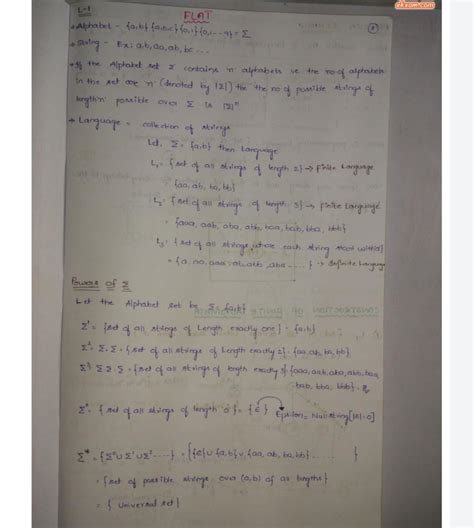 L-1
FLAT
→ Alphabet - {a,b} {a,b,c} {0,1} {0,1...9} = Σ
→ String - Ex: a,b,aa,ab,bc ...
→ If the Alphabet set Σ contains 'n' alphabets i.e the no of alphabets
in the set are 'n' (denoted by |Σ|) the the no of possible strings of
length 'n' possible over Σ is |Σ|ⁿ
→ Language = collection of strings
Let Σ = {a,b} then Language
L₁ = { set of all strings of length 2} → Finite Language
{aa, ab, ba, bb}
L₂ = { set of all strings of length 3} → Finite Language
= {aaa, aab, aba, abb, baa, bab, bba, bbb}
L₃ = { set of all strings where each string
= {a, aa, aaa, ab, abb, aba ....} →
Powers of Σ
Let the Alphabet set be Σ {a,b}
Σ¹ = {set of all strings of Length exactly one} = {a,b}
Σ² = Σ.Σ = {set of all strings of Length exactly 2} = {aa, ab, ba, bb}
Σ³ Σ.Σ.Σ = {set of all strings of length exactly 3} {aaa, aab, aba, abb, baa
bab, bba, bbb} = 8
Σ⁰ = { set of all strings of length '0'} = {ϵ} Epsilon = Null string
Σ* = {Σ⁰ ∪ Σ¹ ∪ Σ² .....} = {{ϵ} ∪ {a,b} ∪ {aa, ab, ba, bb} .....}
= {set of possible strings over (a,b) of lengths}
= { universal set}